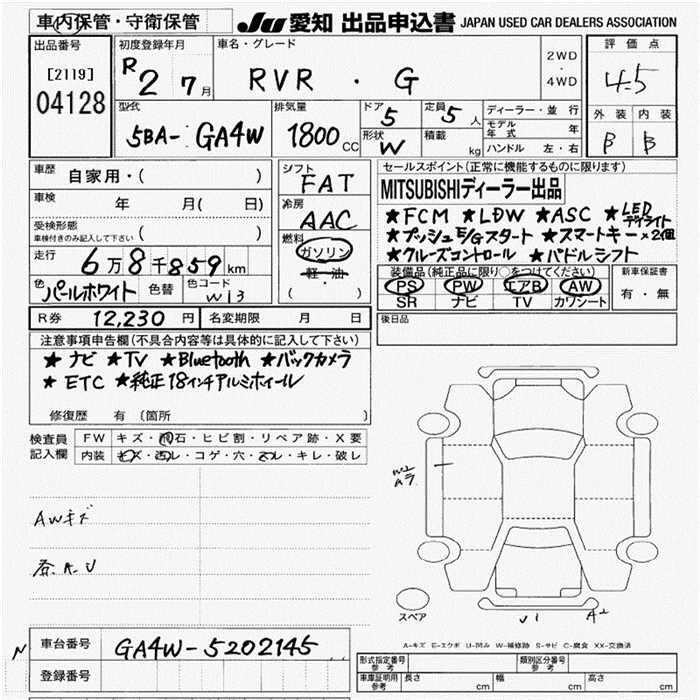 車内保管・守衛保管
JU 愛知 出品申込書 JAPAN USED CAR DEALERS ASSOCIATION
出品番号
[2119]
04128
初度登録年月
R2 7月
車名・グレード
RVR ・ G
2WD
・
4WD
評価点
4.5
型式
5BA- GA4W
排気量
1800 CC
ドア
5
定員
5人
形状
W
積載
kg
ディーラー・並行
モデル年式 年
ハンドル 左・右
外装 内装
B B
車歴
自家用・( )
車検
年 月( 日)
受検形態
車検付きのみ記入して下さい ( )
走行
6万8千859km
色
パールホワイト
色替
色コード
W13
シフト
FAT
冷房
AAC
燃料
ガソリン
軽・油
( )
セールスポイント(正常に機能するものに限ります)
MITSUBISHIディーラー出品
★FCM ★LDW ★ASC ★LEDデイライト
★プッシュE/Gスタート ★スマートキー×2個
★クルーズコントロール ★パドルシフト
装備品(純正品に限り○をつけてください)
PS PW エアB AW
SR ナビ TV カワシート
新車保証書
有・無
R券 12,230円
名変期限 月 日
後日品
注意事項申告欄(不具合内容等は具体的に記入して下さい)
★ナビ ★TV ★Bluetooth ★バックカメラ
★ETC ★純正18インチアルミホイール
修復歴 有 (箇所 )
検査員
記入欄
FW キズ・飛石・ヒビ割・リペア跡・X要
内装 キズ・汚レ・コゲ・穴・スレ・キレ・破レ
AWキズ
A.U
スペア
U1
A2
A-キズ E-エクボ U-凹み W-補修跡 S-サビ C-腐食 XX-交換済
N
車台番号
GA4W-5202145
登録番号
形式指定番号
参考
類別区分番号
参考
車庫証明用
参考
長さ cm 幅 cm 高さ cm